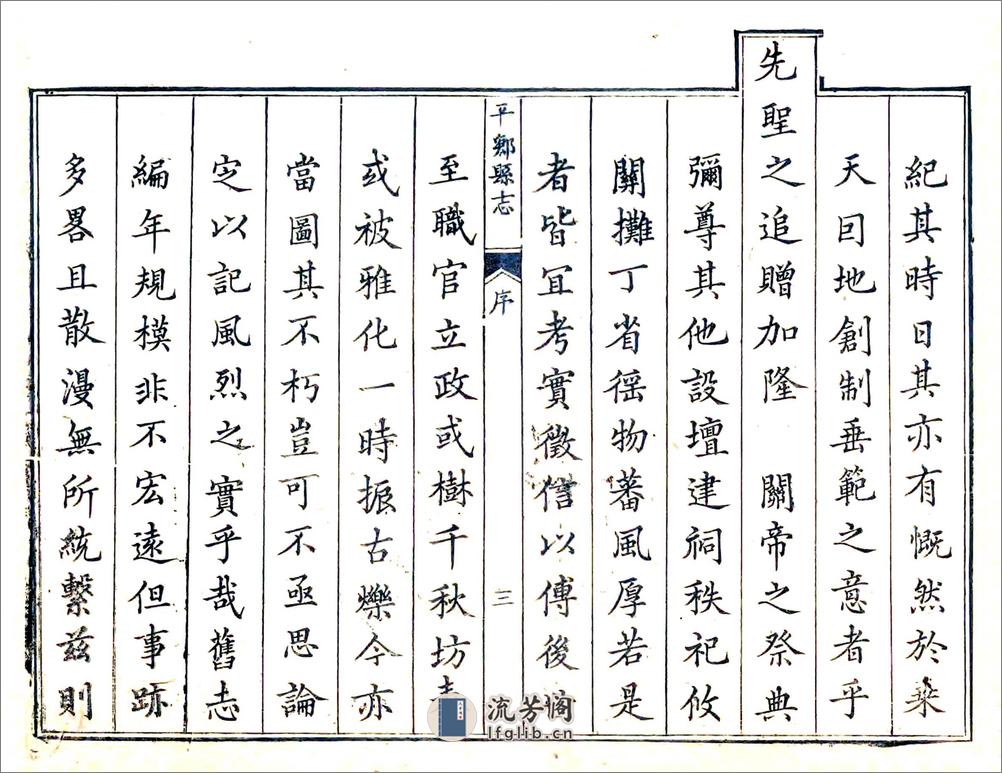 紀其時日其亦有慨然於乘
天囙地創制垂範之意者乎
先聖之追贈加隆 關帝之祭典
彌尊其他設壇建祠秩祀攸
關攤丁省徭物蕃風厚若是
者皆冝考實徵信以傳後
平鄉縣志 序 三
至職官立政或樹千秋坊
或被雅化一時振古爍今亦
當圖其不朽豈可不亟思論
定以記風烈之實乎哉舊志
編年規模非不宏遠但事跡
多畧且散漫無所統繫茲則
流芳阁
lfglib.cn